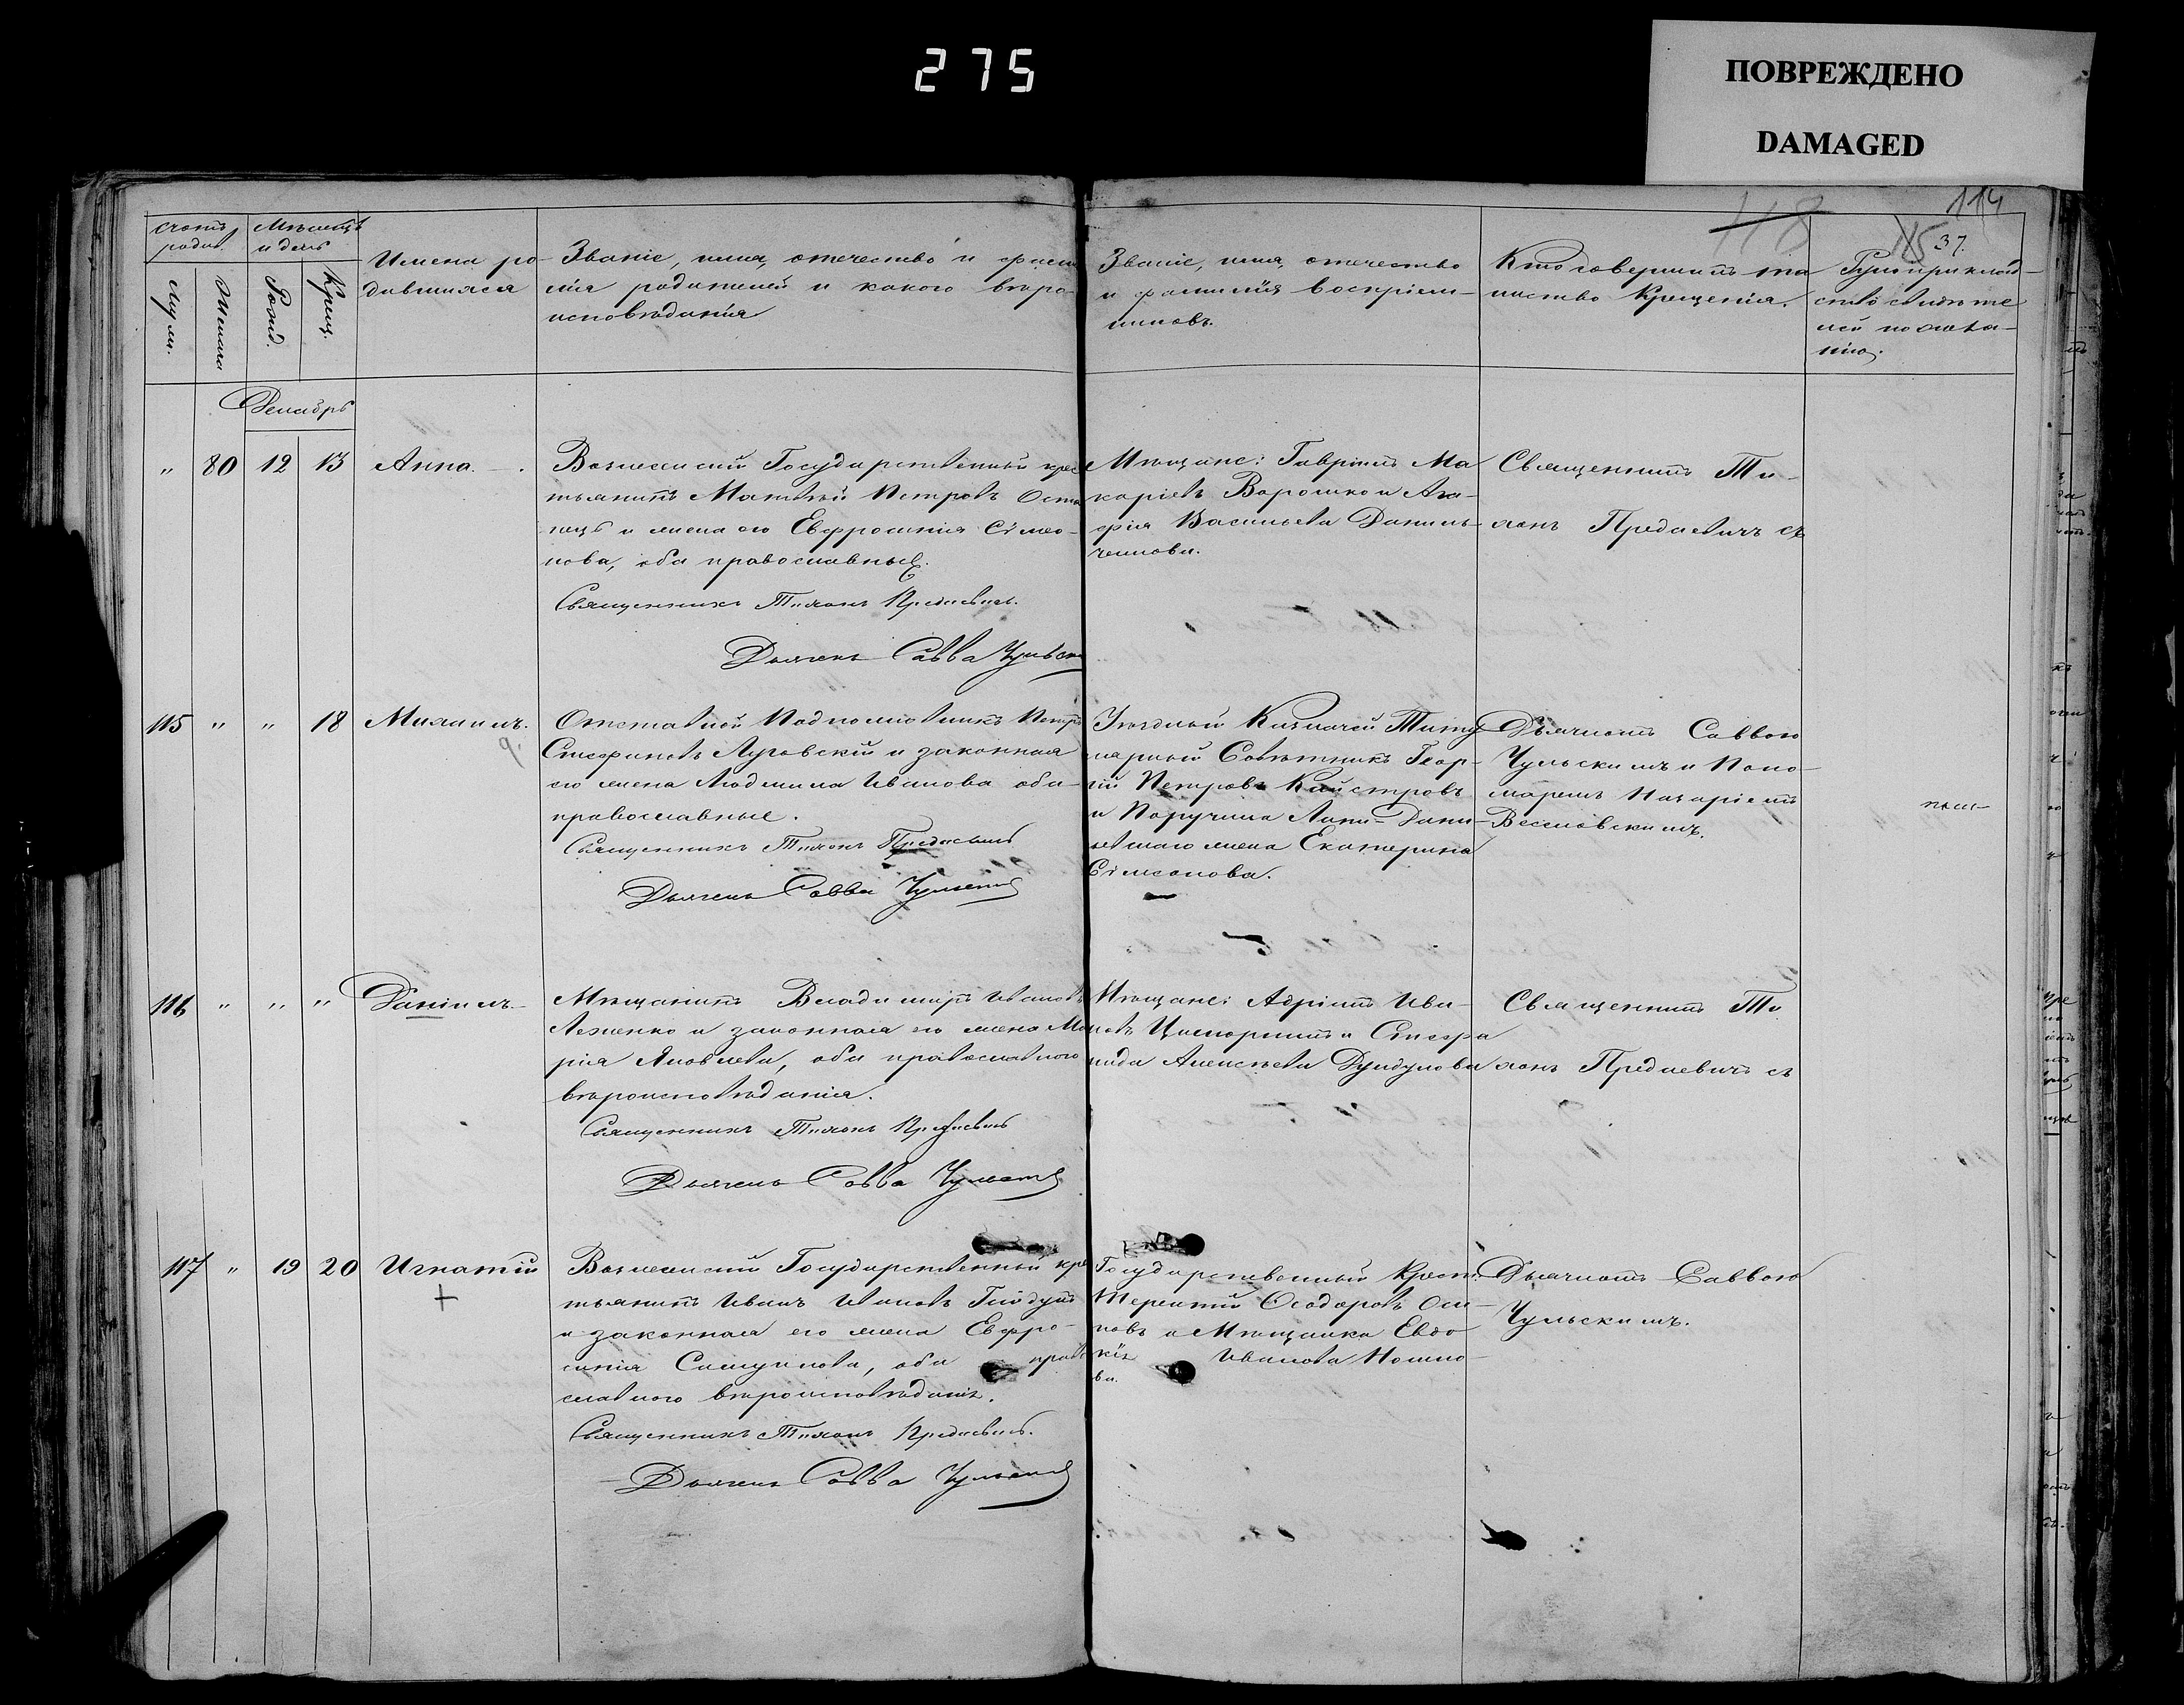 275
ПОВРЕЖДЕНО
DAMAGED
118
114
115
37.
Счетъ родив.
Мѣсяцъ и день
Муж.
Женска
Рожд.
Крещ.
Имена ро-
дившихся
Званіе, имя, отечество и фами
лія родителей и какого вѣро-
исповѣданія
Званіе, имя, отечество
и фамилія воспріем-
никовъ.
Кто совершилъ та
инство Крещенія.
Рукоприклад-
ство свидѣте
лей по жела-
нію.
Декабрь
" 80 12 13 Анна.
Вознесенскій Государственный крес
тьянинъ Матвѣй Петровъ
и жена его Евфросинія Сѵмео-
нова, оба православные.
Священникъ Тихонъ Предаевичъ.
Дьячекъ Савва Чульск
Мѣщане: Гавріилъ Ма
каріевъ Ворошко и Ага-
фія Васильева Даниль-
ченкова.
Священникъ Ти-
хонъ Предаевичъ съ
115 " " 18 Михаилъ.
Отставной Подполковникъ Петръ
Стефановъ Луговскій и законная
его жена Людмила Иванова оба
православные.
Священникъ Тихонъ Предаевичъ
Дьячекъ Савва Чульскій
Уѣздный Казначей Титу
лярный Совѣтникъ Геор-
гій Петровъ Кайстровъ
и Поручика
жена Екатерина
Сѵмеонова.
Дьячкомъ Саввою
Чульскимъ и Поно-
маремъ Назаріемъ
Веселовскимъ.
116 " " " Даніилъ.
Мѣщанинъ Владиміръ Ивановъ
Леженко и законная его жена Ма
рія Яковлева, оба православного
вѣроисповѣданія.
Священникъ Тихонъ Предаевичъ
Дьячекъ Савва Чульскій
Мѣщане: Адріанъ Ива-
новъ и Стефа
нида Алексѣева Дундукова
Священникъ Ти
хонъ Предаевичъ съ
117 " 19 20 Игнатій
+
Вознесенскій Государственный кре
тьянинъ Иванъ Ивановъ
и законная его жена Евфро-
синія Самуилова, оба право
славного вѣроисповѣданія.
Священникъ Тихонъ Предаевичъ.
Дьячекъ Савва Чульскій
Государственный Крест.
Терентій Ѳеодоровъ Оси-
повъ и Мѣщанка Евдо
кія Иванова
ва.
Дьячкомъ Саввою
Чульскимъ.